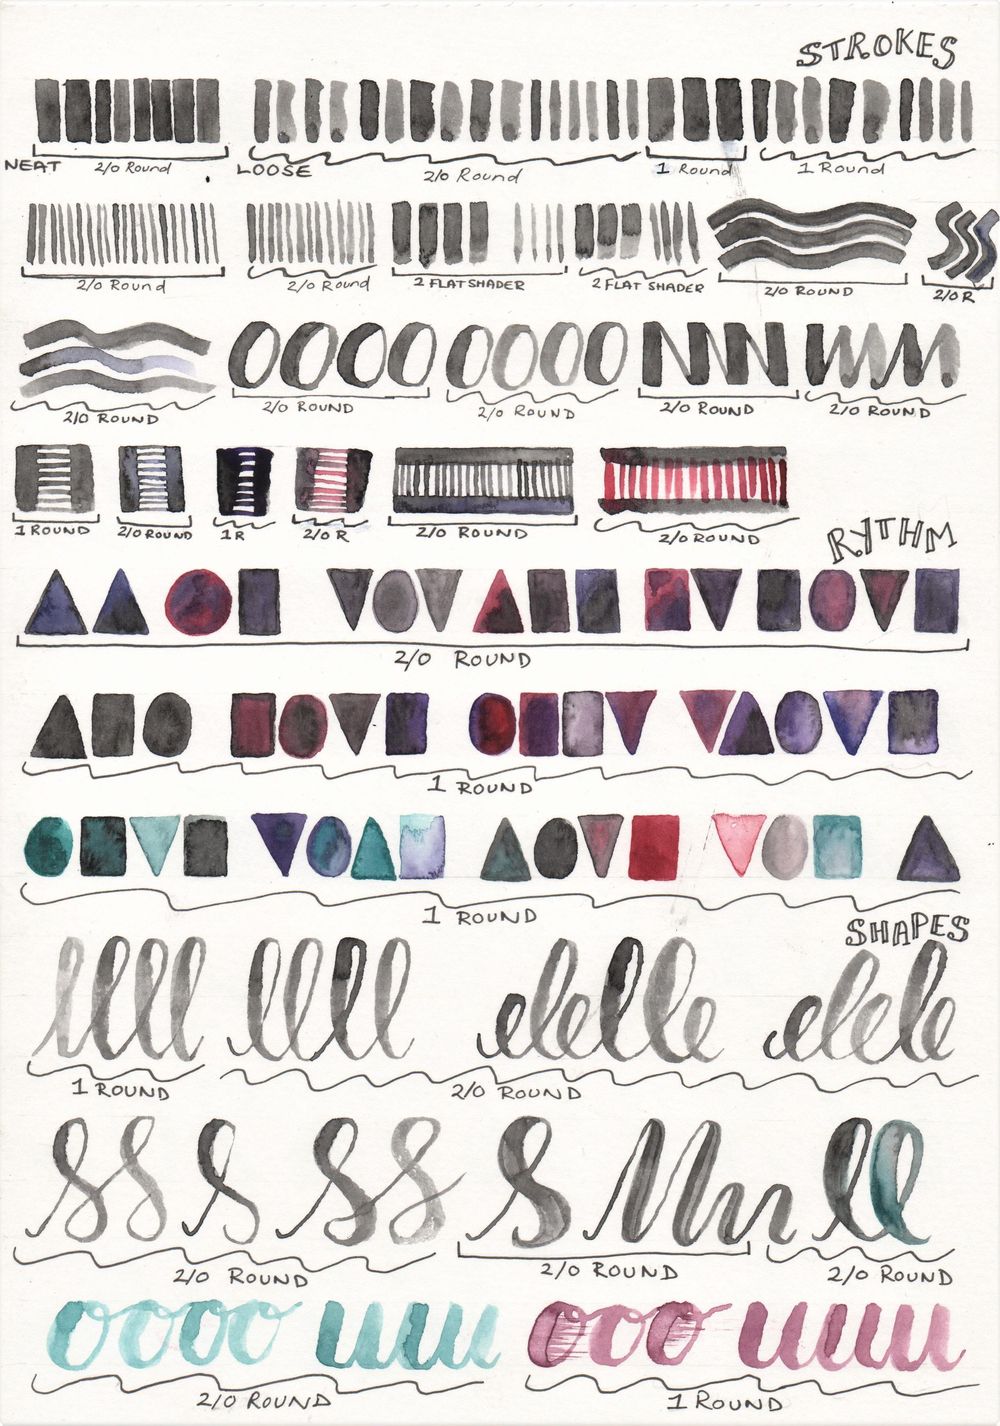 STROKES
NEAT 2/0 Round LOOSE 2/0 Round 1 Round 1 Round
2/0 Round 2/0 Round 2 FLAT SHADER 2 FLAT SHADER 2/0 ROUND 2/0 R
2/0 ROUND 2/0 ROUND 2/0 ROUND 2/0 ROUND 2/0 ROUND
1 ROUND 2/0 ROUND 1 R 2/0 R 2/0 ROUND 2/0 ROUND
RYTHM
2/0 ROUND
1 ROUND
1 ROUND
SHAPES
1 ROUND 2/0 ROUND
2/0 ROUND 2/0 ROUND 2/0 ROUND
2/0 ROUND 1 ROUND